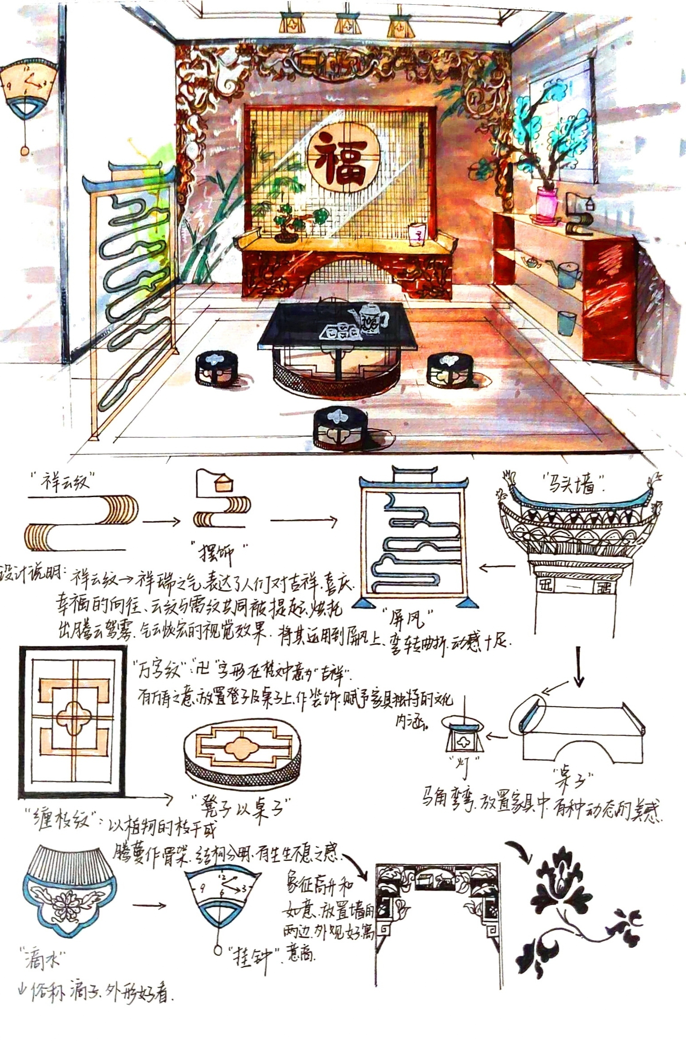 福
12
9
3
"祥云纹"
"马头墙"
"摆饰"
设计说明:祥云纹→祥瑞之气,表达了人们对吉祥、喜庆、
幸福的向往、云纹与雷纹共同被提炼,烘托
出腾云驾雾、气云恢宏的视觉效果.将其运用到屏风上、弯转曲折、动感十足.
"屏风"
"万字纹":"卍"字形在梵文中意为"吉祥".
有万有之意、放置凳子及桌子上,作装饰,赋予家具独特的文化
内涵。
"灯"
"桌子"
马角弯弯、放置家具中,有种动态的美感.
"凳子以桌子"
"缠枝纹":以植物的枝干或
腾蔓作骨架、结构分明、有生生不息之感、
象征高升和
如意、放置墙的
两边、外观好寓
意高.
12
9
3
"挂钟"
"滴水"
俗称滴子、外形好看.